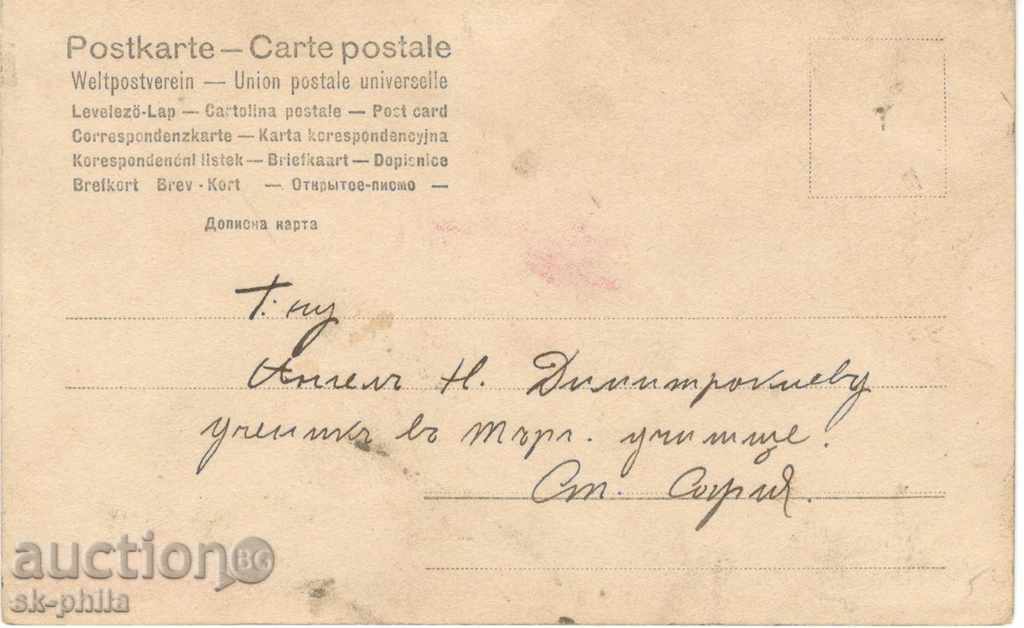 Postkarte — Carte postale
Weltpostverein — Union postale universelle
Levelező-Lap — Cartolina postale — Post card
Correspondenzkarte — Karta korespondencyjna
Korespondenční listek — Briefkaart — Dopisnice
Brefkort Brev-Kort — Открытое-писмо —
Дописна карта
Т: ну
Ангелъ Н. Димитроклиеву
ученикъ въ Търг. училище.
Ст. София.
auction BG
sk-phila
5